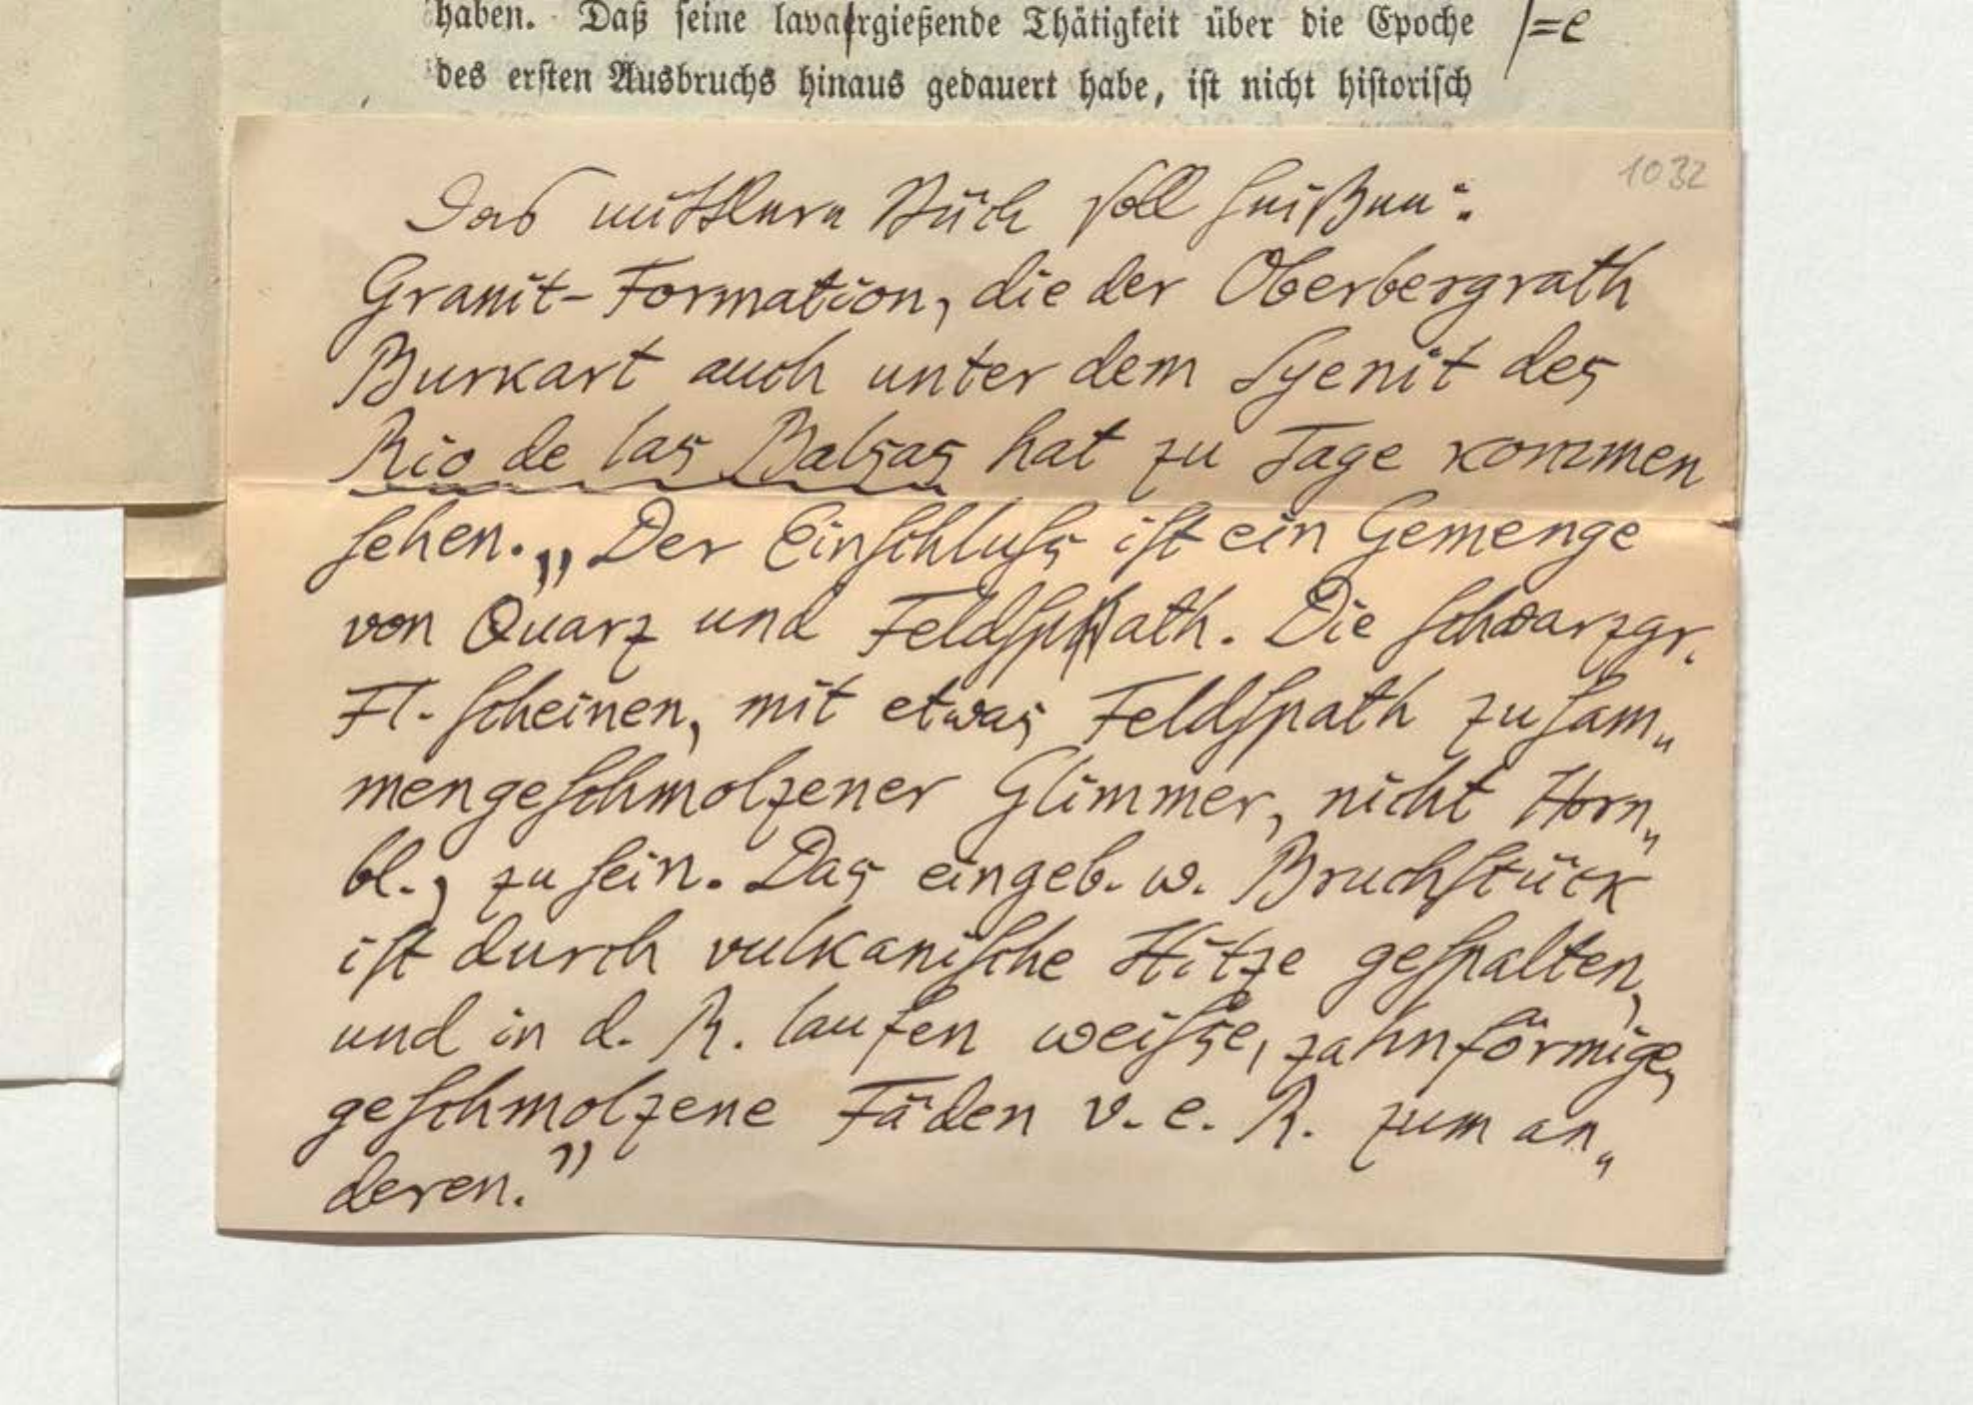 haben. Daß ſeine lavaergießende Thätigkeit über die Epoche
/=e
des erſten Ausbruchs hinaus gedauert habe, iſt nicht hiſtoriſch
1032
Das mittlere Stück ſoll heißen:
Granit-Formation, die der Oberbergrath
Burkart auch unter dem Syenit des
Rio de las Balsas hat zu Tage kommen
ſehen. „Der Einſchluſs iſt ein Gemenge
von Quarz und Feldſpath. Die ſchwarzgr.
Fl. ſcheinen, mit etwas Feldſpath zuſam„
mengeſchmolzener Glimmer, nicht Horn„
bl., zu ſein. Das eingeb. w. Bruchſtück
iſt durch vulkaniſche Hitze geſpalten,
und in d. R. laufen weiſse, zahnförmige,
geſchmolzene Fäden v. e. R. zum an„
deren.”